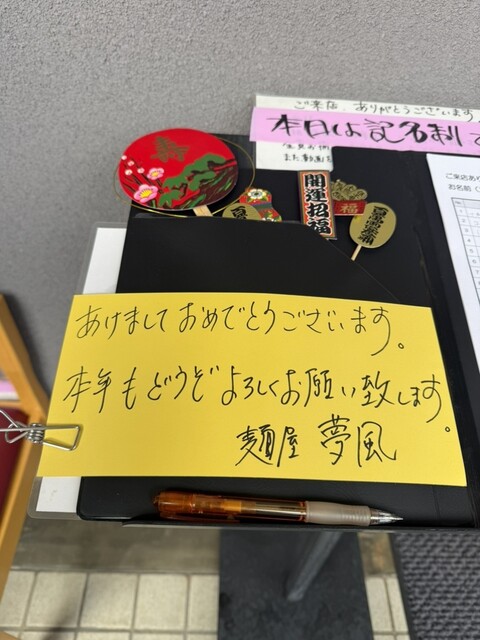 ご来店、ありがとうございます
本日は記名制
また動画
開運招福
福
ご来店あり
お名前
あけましておめでとうございます。
本年もどうぞよろしくお願い致します。
麺屋 夢風